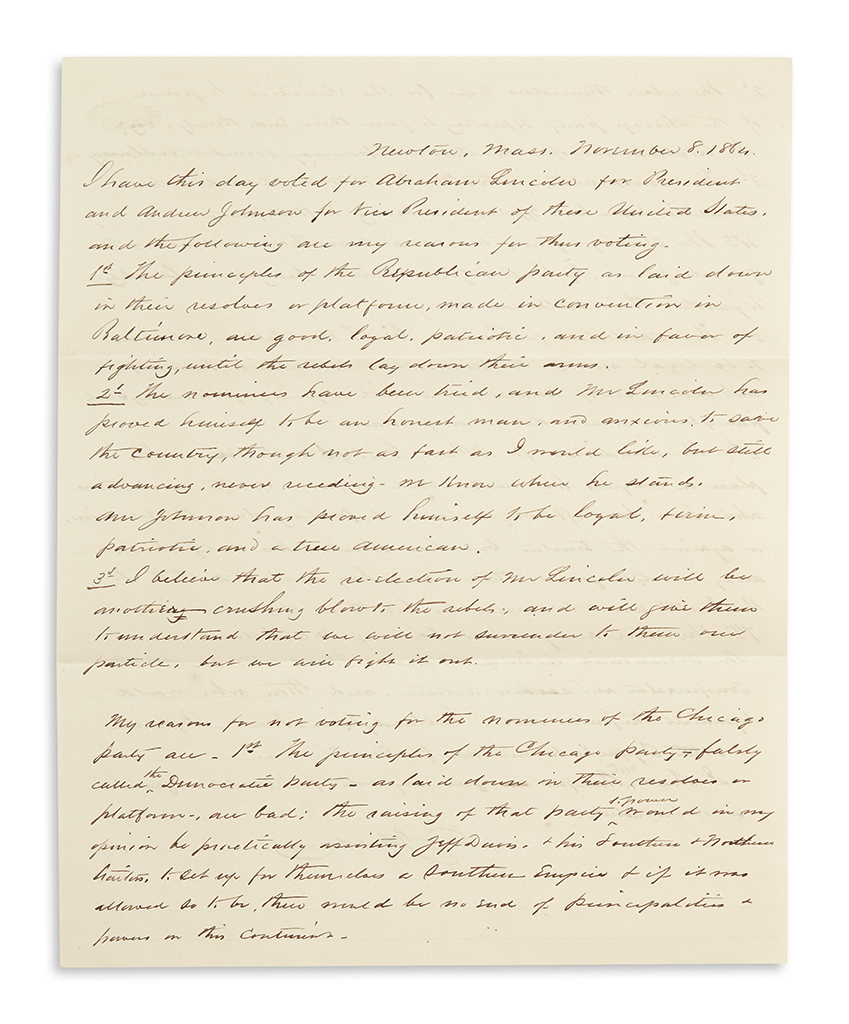 Newton, Mass. November 8. 1864.
I have this day voted for Abraham Lincoln for President
and Andrew Johnson for Vice President of these United States,
and the following are my reasons for thus voting.
1st The principles of the Republican party as laid down
in their resolves or platform, made in convention in
Baltimore, are good, loyal, patriotic, and in favor of
fighting, until the rebels lay down their arms.
2d The nominees have been tried, and Mr Lincoln has
proved himself to be an honest man, and anxious, to save
the country, though not as fast as I would like, but still
advancing, never receding - we know where he stands.
Mr Johnson has proved himself to be loyal, firm,
patriotic, and a true American.
3d I believe that the re-election of Mr Lincoln will be
another crushing blow to the rebels, and will give them
to understand that we will not surrender to them one
particle, but we will fight it out.
My reasons for not voting for the nominees of the Chicago
party are - 1st The principles of the Chicago party, falsly
called the Democratic party - as laid down in their resolves or
platform -, are bad; the raising of that party to power would in my
opinion be practically assisting Jeff Davis, & his Southern & Northern
traitors, to set up for themselves a Southern Empire & if it was
allowed so to be, there would be no end of principalities &
powers on this continent -